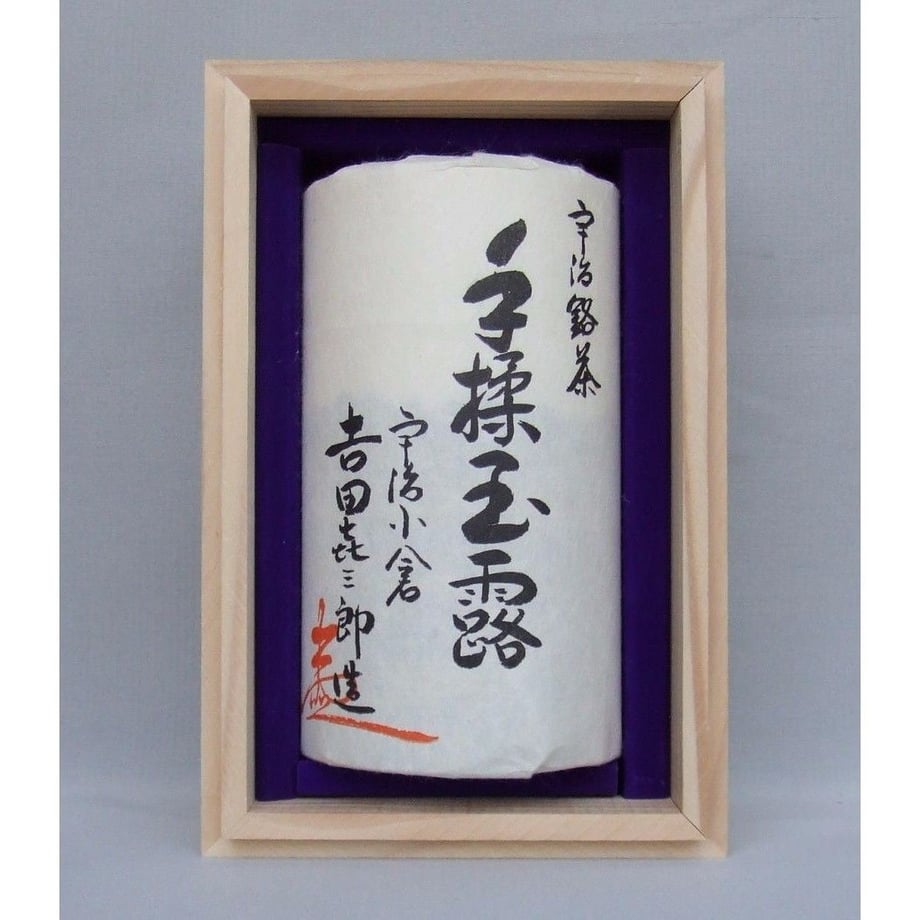 宇治銘茶
手揉玉露
宇治小倉
吉田喜三郎造